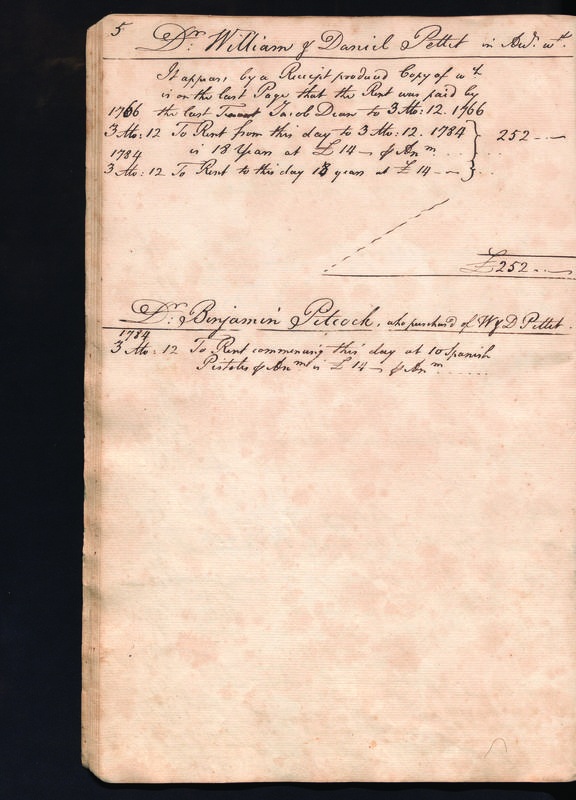 5
Dr. William & Daniel Pettit in Acct. wt.
It appears by a Receipt produced Copy of wch
is on the last Page that the Rent was paid by
1766 the last Tenant Jacob Dean to 3 Mo: 12. 1766
3 Mo: 12 To Rent from this day to 3 Mo: 12. 1784 } 252 .. —
1784 is 18 Years at £14 — ⅌ Anm. . . . .
3 Mo: 12 To Rent to this day 18 years at £14 — — . .
£252 .. —
Dr. Benjamin Pitcock, who purchasd of W & D Pettit.
1784
3 Mo: 12 To Rent commencing this day at 10 Spanish
Pistoles ⅌ Anm is £14 — ⅌ Anm. . . . . .